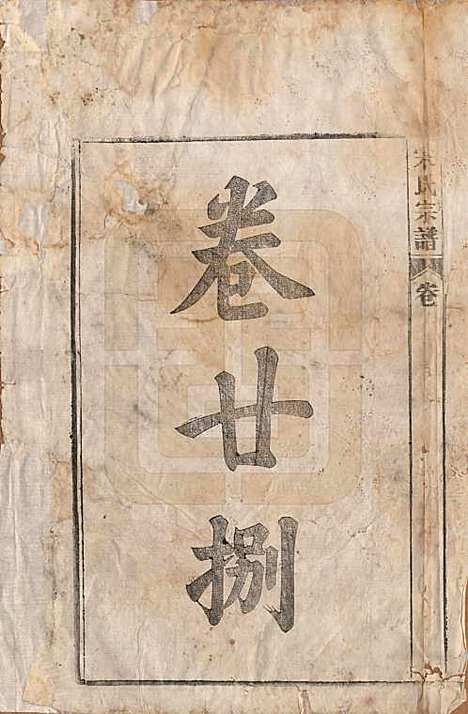 卷廿捌
氏宗譜 卷